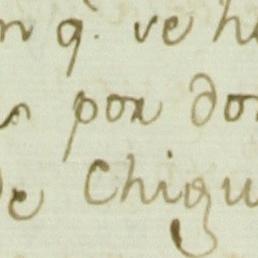 n q. ve h
por do
de Chiqu